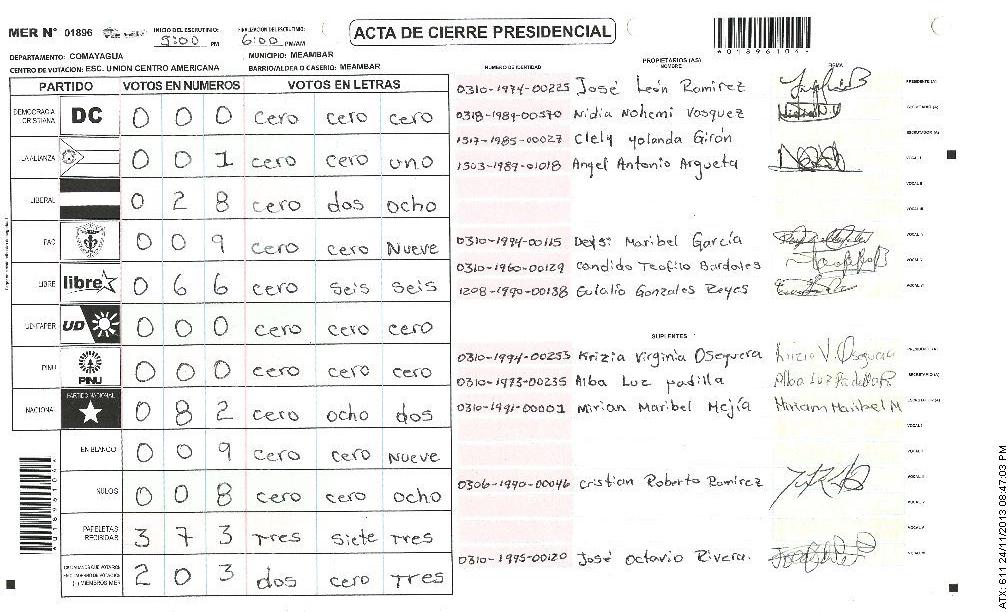 MER N° 01896
INICIO DEL ESCRUTINIO: 5:00 PM
FINALIZACION DE ESCRUTINIO: 6:00 PM/AM
ACTA DE CIERRE PRESIDENCIAL
DEPARTAMENTO: COMAYAGUA
MUNICIPIO: MEAMBAR
CENTRO DE VOTACION: ESC. UNION CENTRO AMERICANA
BARRIO/ALDEA O CASERIO: MEAMBAR
PARTIDO VOTOS EN NUMEROS VOTOS EN LETRAS
DEMOCRACIA CRISTIANA DC 0 0 0 cero cero cero
LA ALIANZA 0 0 1 cero cero uno
LIBERAL 0 2 8 cero dos ocho
PAC 0 0 9 cero cero Nueve
LIBRE libre 0 6 6 cero seis seis
UD-FAPER UD 0 0 0 cero cero cero
PINU PINU 0 0 0 cero cero cero
NACIONAL PARTIDO NACIONAL 0 8 2 cero ocho dos
EN BLANCO 0 0 9 cero cero Nueve
NULOS 0 0 8 cero cero ocho
PAPELETAS RECIBIDAS 3 7 3 Tres siete Tres
2 0 3 dos cero Tres
NUMERO DE IDENTIDAD PROPIETARIOS (AS) NOMBRE FIRMA
0310-1974-00225 José León Ramirez PRESIDENTE (A)
0318-1989-00570 Nidia Nohemi Vosquez SECRETARIO (A)
1317-1985-00027 Clely yolanda Girón ESCRUTADOR (A)
1503-1989-01018 Angel Antonio Argueta VOCAL I
VOCAL II
VOCAL III
0310-1974-00115 Deysi Maribel García
0310-1960-00129 Candido Teofilo Bardales VOCAL V
1208-1990-00138 Eulalio Gonzales Reyes VOCAL VI
SUPLENTES
0310-1994-00253 Krizia Virginia Oseguera Krizia V. Oseguera PRESIDENTE (A)
0310-1973-00235 Alba Luz padilla Alba Luz Padilla SECRETARIO (A)
0310-1991-00001 Mirian Maribel Mejía Miriam Maribel M
0306-1990-00046 Cristian Roberto Ramirez
0310-1995-00120 José Octavio Rivera.
ATX: 611 24/11/2013 08:47:03 PM